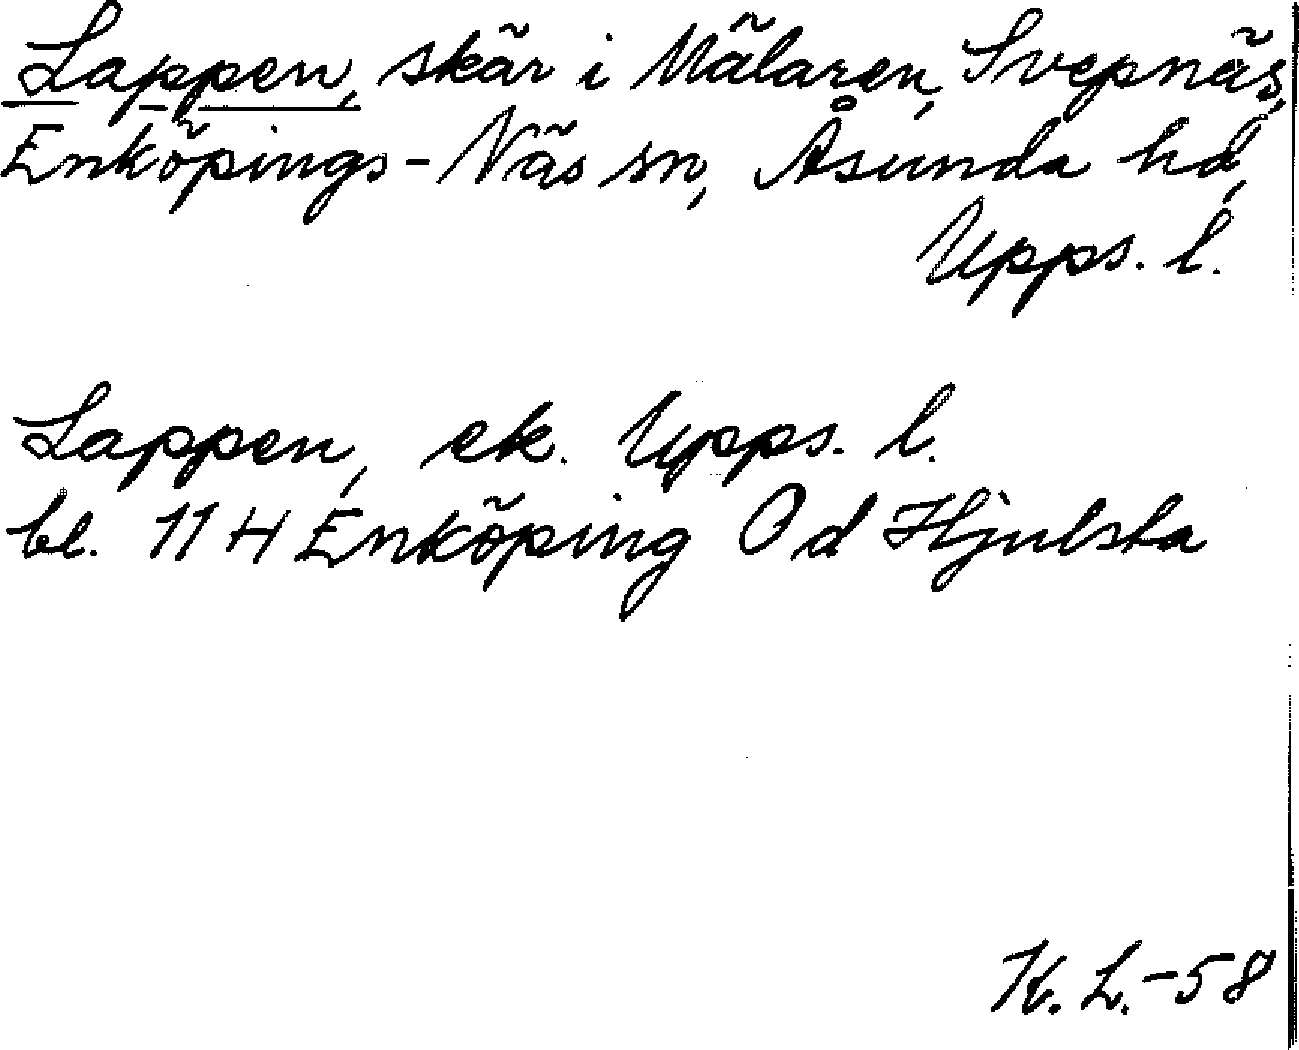 Lappen, skär i Mälaren, Svepnäs,
Enköpings-Näs sn, Åsunda hd,
Upps. l.
Lappen, ek. Upps. l.
bl. 11 H Enköping Od Hjulsta
K. L.-58